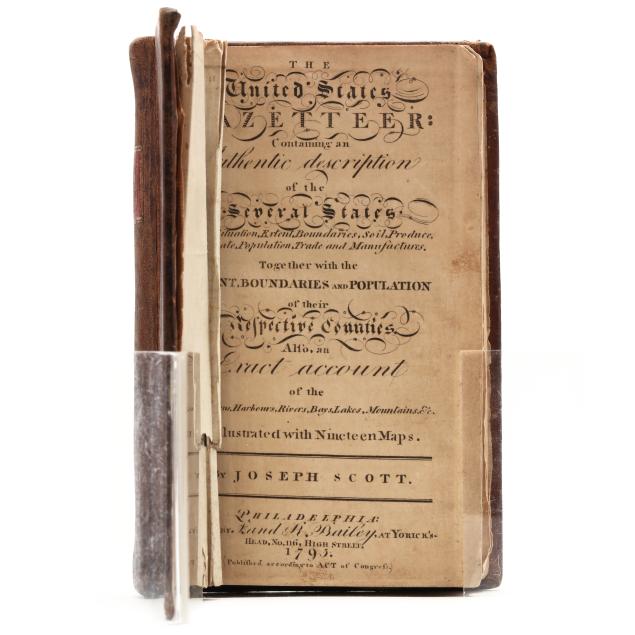 THE
United States
AZETTEER:
Containing an
uthentic description
of the
Several States.
ituation, Extent, Boundaries, Soil, Produce,
ate, Population, Trade and Manufactures.
Together with the
NT, BOUNDARIES AND POPULATION
of their
Respective Counties
Also, an
Exact account
of the
ns, Harbours, Rivers, Bays, Lakes, Mountains, &c.
lustrated with Nineteen Maps.
BY JOSEPH SCOTT.
PHILADELPHIA:
BY F. and R. Bailey, AT YORICK'S-
HEAD, No. 116, HIGH STREET,
1795.
Published according to ACT of Congress.